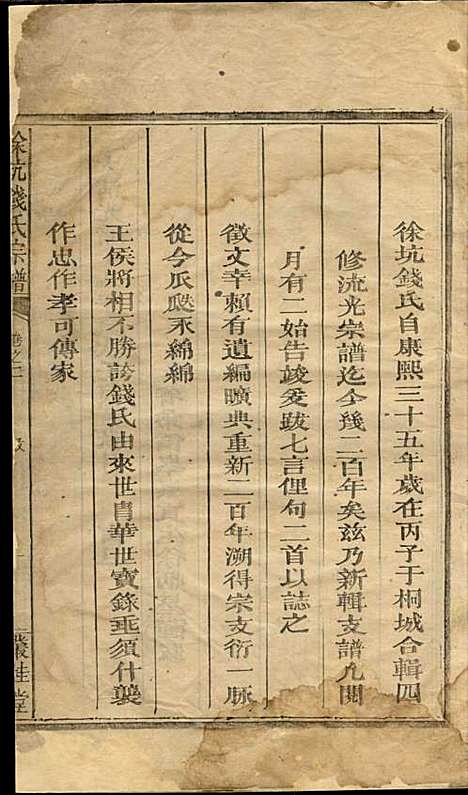 徐坑錢氏自康熙三十五年歲在丙子于桐城合輯四
修流光宗譜迄今幾二百年矣茲乃新輯支譜凡閱
月有二始告竣爰跋七言俚句二首以誌之
徵文幸賴有遺編曠典重新二百年溯得宗支衍一脉
從今瓜瓞永綿綿
王侯將相不勝誇錢氏由來世胄華世寶錄垂須什襲
作忠作孝可傳家
徐坑錢氏宗譜
卷之二
跋
叢桂堂